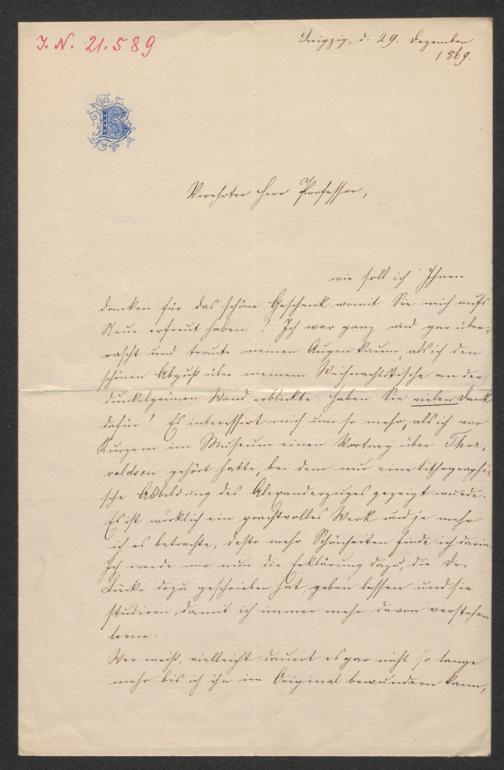 J. N. 21.589
Leipzig, d. 29. Dezember
1869.
B
Verehrter Herr Professor,
wie soll ich Ihnen
danken für das schöne Geschenk womit Sie mich aufs
Neue erfreut haben! Ich war ganz und gar über-
rascht und traute meinen Augen kaum, als ich den
schönen Abguß über meinem Weihnachtstische an der
dunkelgrünen Wand erblickte. Haben Sie vielen Dank
dafür! Es interessirt mich um so mehr, als ich vor
Kurzem im Museum einen Vortrag über Thor-
valdsen gehört hatte, bei dem nur eine lithographi-
sche Abbildung des Alexanderzuges gezeigt wurde.
Es ist wirklich ein prachtvolles Werk und je mehr
ich es betrachte, desto mehr Schönheiten finde ich darin.
Ich werde mir nun die Erklärung dazu, die Dr.
Lücke dazu geschrieben hat, geben lassen und sie
studiren, damit ich immer mehr davon verstehen
lerne.
Wer weiß, vielleicht dauert es gar nicht so lange
mehr bis ich ihn im Original bewundern kann,